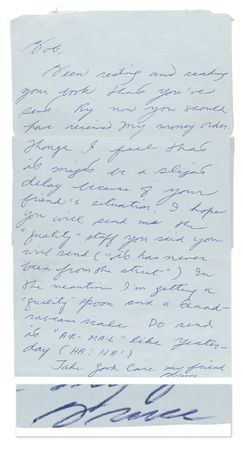 Bob,
Been resting and reading
your book that you've
sent. By now you should
have received my money order,
though I feel that
it might be a slight
delay because of your
friend's situation. I hope
you will send me the
"quality" stuff you said you
will send ("it has never
been from the street") In
the meantime I'm getting a
"quality" spoon and a quad-
rabeam scale. Do send
it "AR-MAIL" like yester-
day (HA! HA!)
Take Good Care my friend
Bruce
Bruce